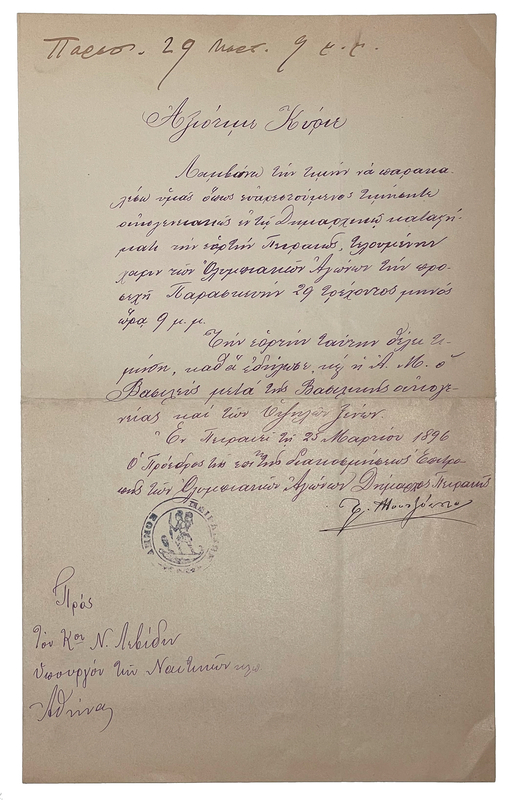 Παρασ. 29 Μαρτ. 9 μ.μ.
Ἀξιότιμε Κύριε
Λαμβάνω τὴν τιμὴν νὰ παρακα-
λέσω ὑμᾶς ὅπως εὐαρεστούμενος τιμήσητε
οἰκογενειακῶς ἐν τῷ Δημαρχιακῷ καταστή-
ματι τὴν ἑορτὴν Πειραιῶς, τελουμένην
χάριν τῶν Ὀλυμπιακῶν Ἀγώνων τὴν προ-
σεχῆ Παρασκευὴν 29 τρέχοντος μηνὸς
ὥρᾳ 9 μ.μ.
Τὴν ἑορτὴν ταύτην θέλει τι-
μήσῃ, καθ' ἃ ἐδήλωσε, καὶ ἡ Α. Μ. ὁ
Βασιλεὺς μετὰ τῆς Βασιλικῆς οἰκογε-
νείας καὶ τῶν Ὑψηλῶν Ξένων.
Ἐν Πειραιεῖ τῇ 25 Μαρτίου 1896
Ὁ Πρόεδρος τῆς ἐπὶ τῆς διακοσμήσεως Ἐπιτρο-
πῆς τῶν Ὀλυμπιακῶν Ἀγώνων Δήμαρχος Πειραιῶς
ΔΗΜΟΣ
Πρὸς
τὸν Κον Ν. Λεβίδην
Ὑπουργὸν τῶν Ναυτικῶν κλπ
Ἀθήνας